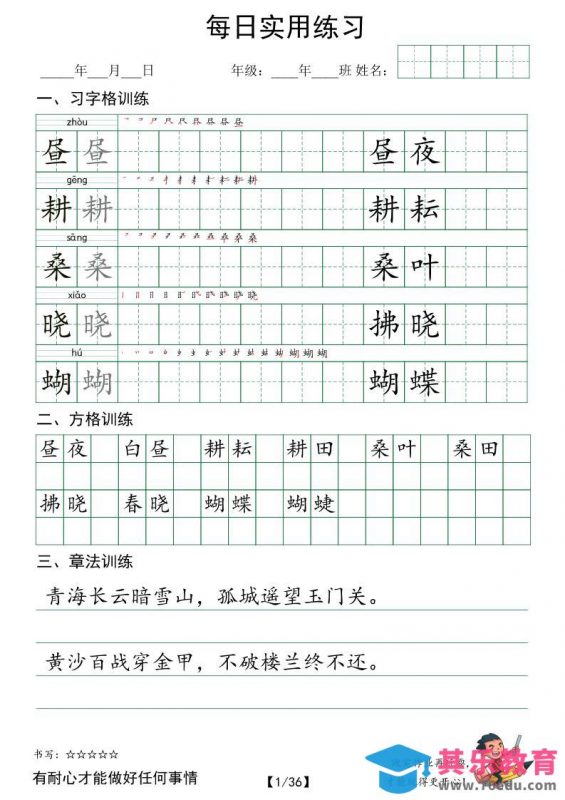 每日实用练习
_____年___月___日 年级：____年____班 姓名：
一、习字格训练
zhòu
昼 昼 昼 夜
gēng
耕 耕 耕 耘
sāng
桑 桑 桑 叶
xiǎo
晓 晓 拂 晓
hú
蝴 蝴 蝴 蝶
二、方格训练
昼夜 白昼 耕耘 耕田 桑叶 桑田
拂晓 春晓 蝴蝶 蝴蜨
三、章法训练
青海长云暗雪山，孤城遥望玉门关。
黄沙百战穿金甲，不破楼兰终不还。
书写：☆☆☆☆☆
有耐心才能做好任何事情
【1/36】
其乐教育